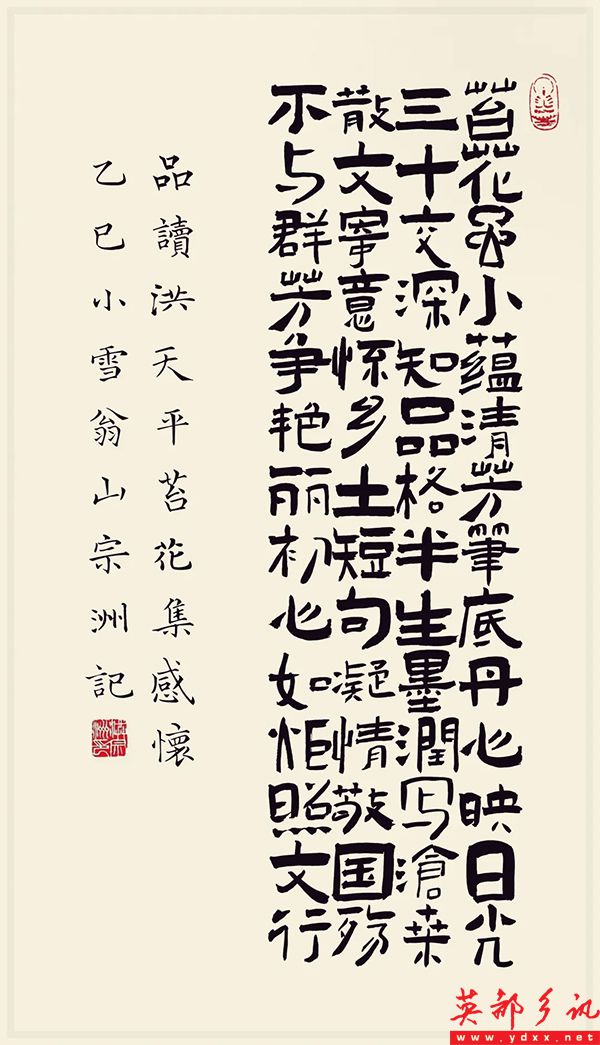 苔花虽小蕴清芳筆底丹心映日光
三十交深知品格半生墨潤写滄桒
散文寄意怀乡土短句凝情敬国殇
不与群芳争艳丽初心如炬照文行
品讀洪天平苔花集感懷
乙巳小雪翁山宗洲記
英都乡讯
www.ydxx.net